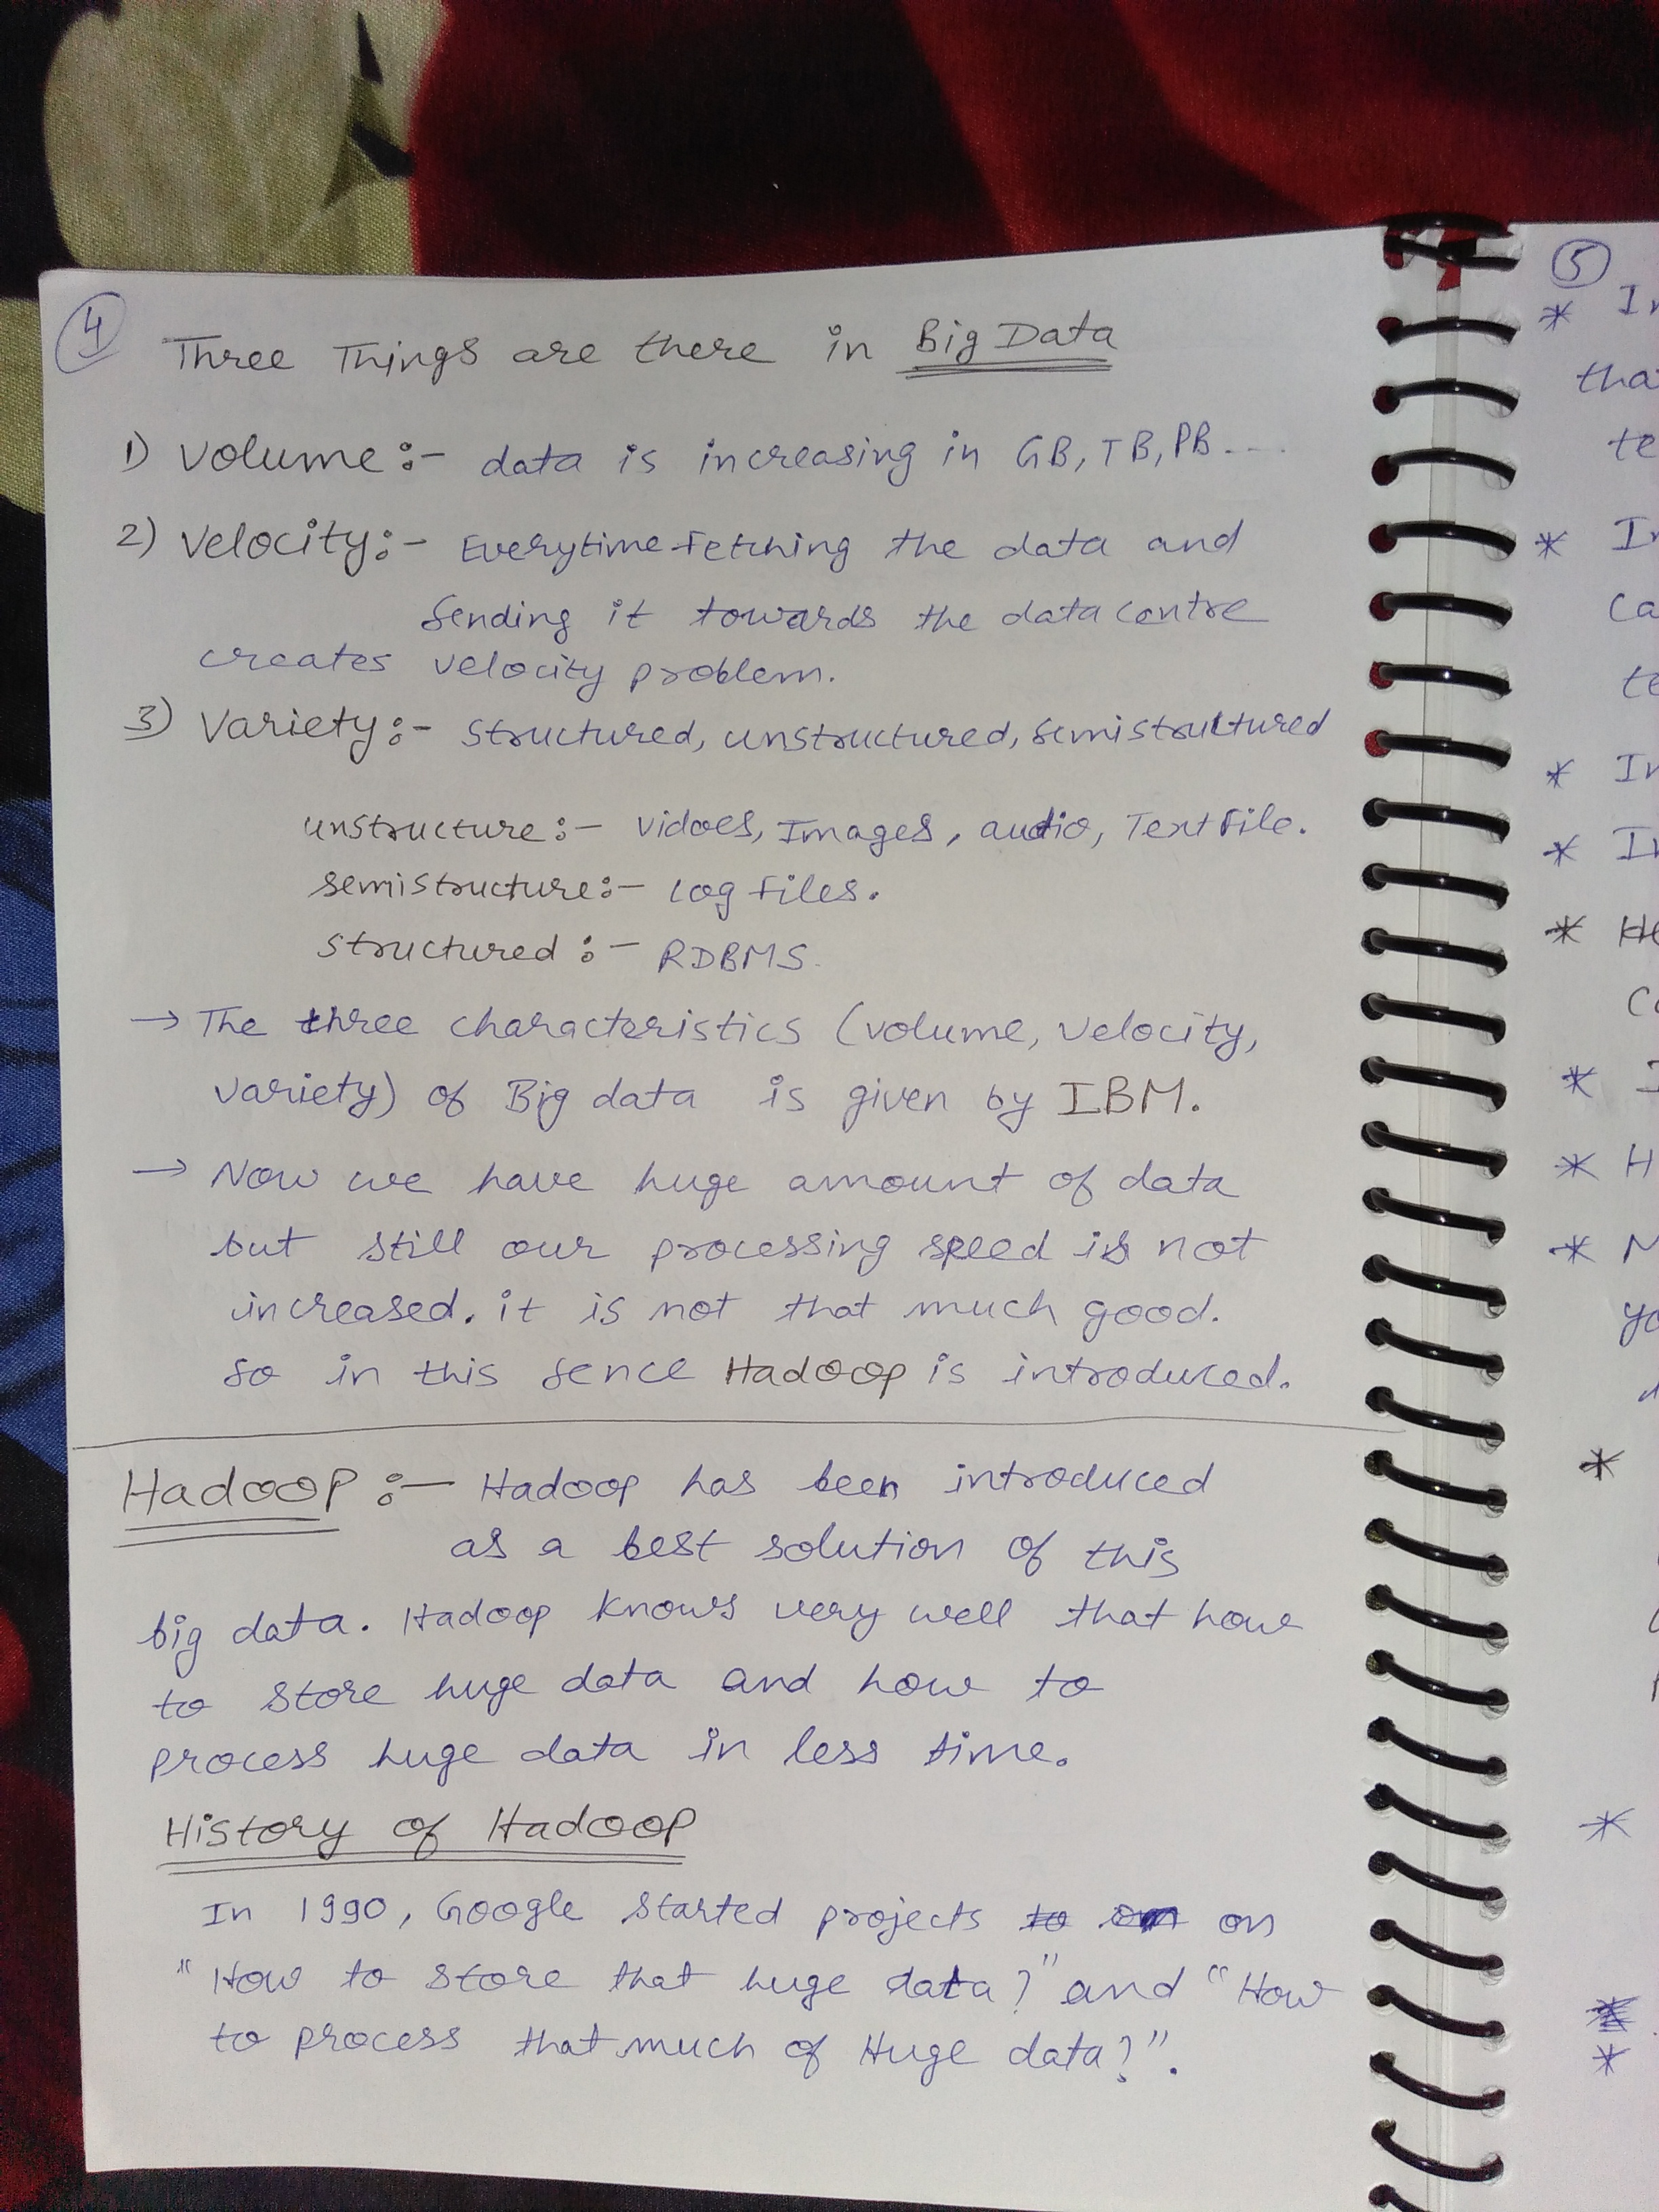 4
Three Things are there in Big Data
1) Volume:- data is increasing in GB, TB, PB....
2) Velocity:- Everytime Fetching the data and
Sending it towards the data centre
creates velocity problem.
3) Variety:- Structured, unstructured, semistructured
unstructure:- vidoes, Images, audio, Text File.
semistructure:- Log Files.
structured:- RDBMS.
→ The three characteristics (volume, velocity,
variety) of Big data is given by IBM.
→ Now we have huge amount of data
but still our processing speed is not
increased. it is not that much good.
So in this sence Hadoop is introduced.
Hadoop:- Hadoop has been introduced
as a best solution of this
big data. Hadoop knows very well that how
to store huge data and how to
process huge data in less time.
History of Hadoop
In 1990, Google started projects to on
"How to store that huge data?" and "How
to process that much of Huge data?".
5
* In
tha
te
* In
ca
te
* In
* In
* He
Co
* I
* H
* M
yo
*
*
*